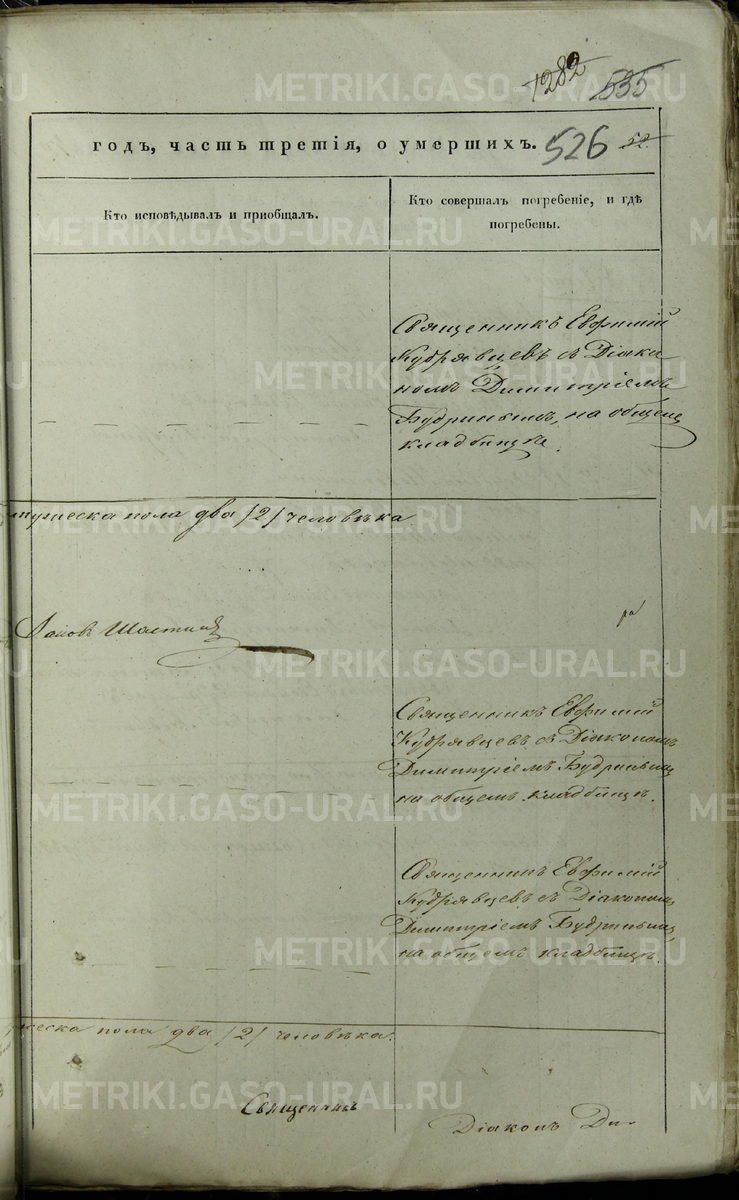 1282 535
годъ, часть третія, о умершихъ. 526 52
Кто исповѣдывалъ и приобщалъ.
Кто совершалъ погребеніе, и гдѣ
погребены.
Священникъ Евфимій
Кудрявцевъ съ Діако
номъ Димитріемъ
Будринымъ, на общемъ
кладбищѣ.
мужеска пола два /2/ человѣка
ра
Священникъ Евфимій
Кудрявцевъ съ Діакономъ
Димитріемъ Будринымъ
на общемъ кладбищѣ.
Священникъ Евфимій
Кудрявцевъ съ Діакономъ
Димитріемъ Будринымъ,
на общемъ кладбищѣ.
жеска пола два /2/ человѣка.
Священникъ
Діаконъ Ди
METRIKI.GASO-URAL.RU